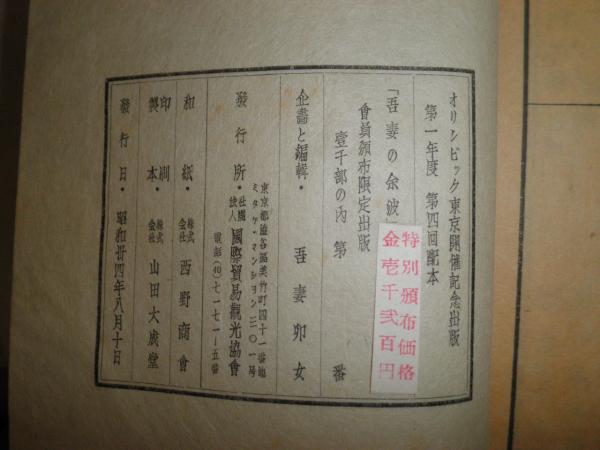 オリンピック東京開催記念出版
第一年度 第四回配本
「吾妻の余波」
會員頒布限定出版
壹千部の內 第 番
特別頒布価格
金壱千弐百円
企畵と編輯・ 吾妻卯女
東京都澁谷區美竹町四十一番地
ミタケ・マンション二〇一号
發行所・社團法人 國際貿易觀光協會
電話(40)七一七一ー五番
和紙・株式会社 西野商會
印刷製本・株式会社 山田大成堂
發行日・昭和卅四年八月十日